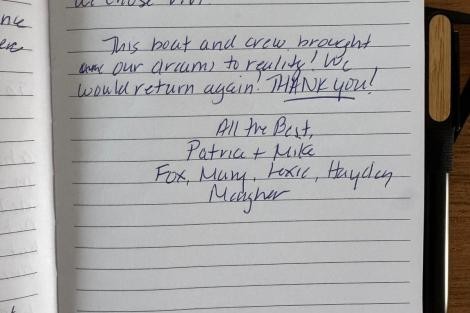 we chose
This boat and crew brought
our dreams to reality! We
would return again! THANK you!
All the Best,
Patricia + Mike
Fox, Mary, Lexie, Hayden
Meagher